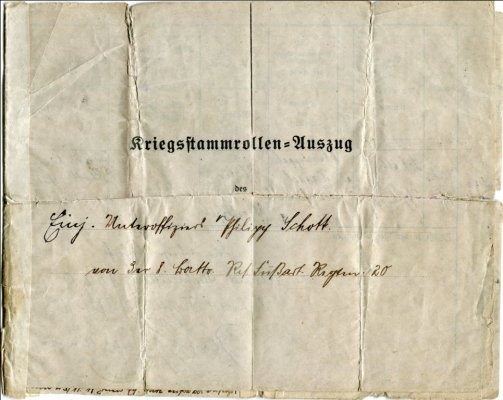 Kriegsstammrollen=Auszug
des
Einj. Unteroffiziers Philipp Schott.
von der 8. Battr. Res. Fußart. Regim. 20